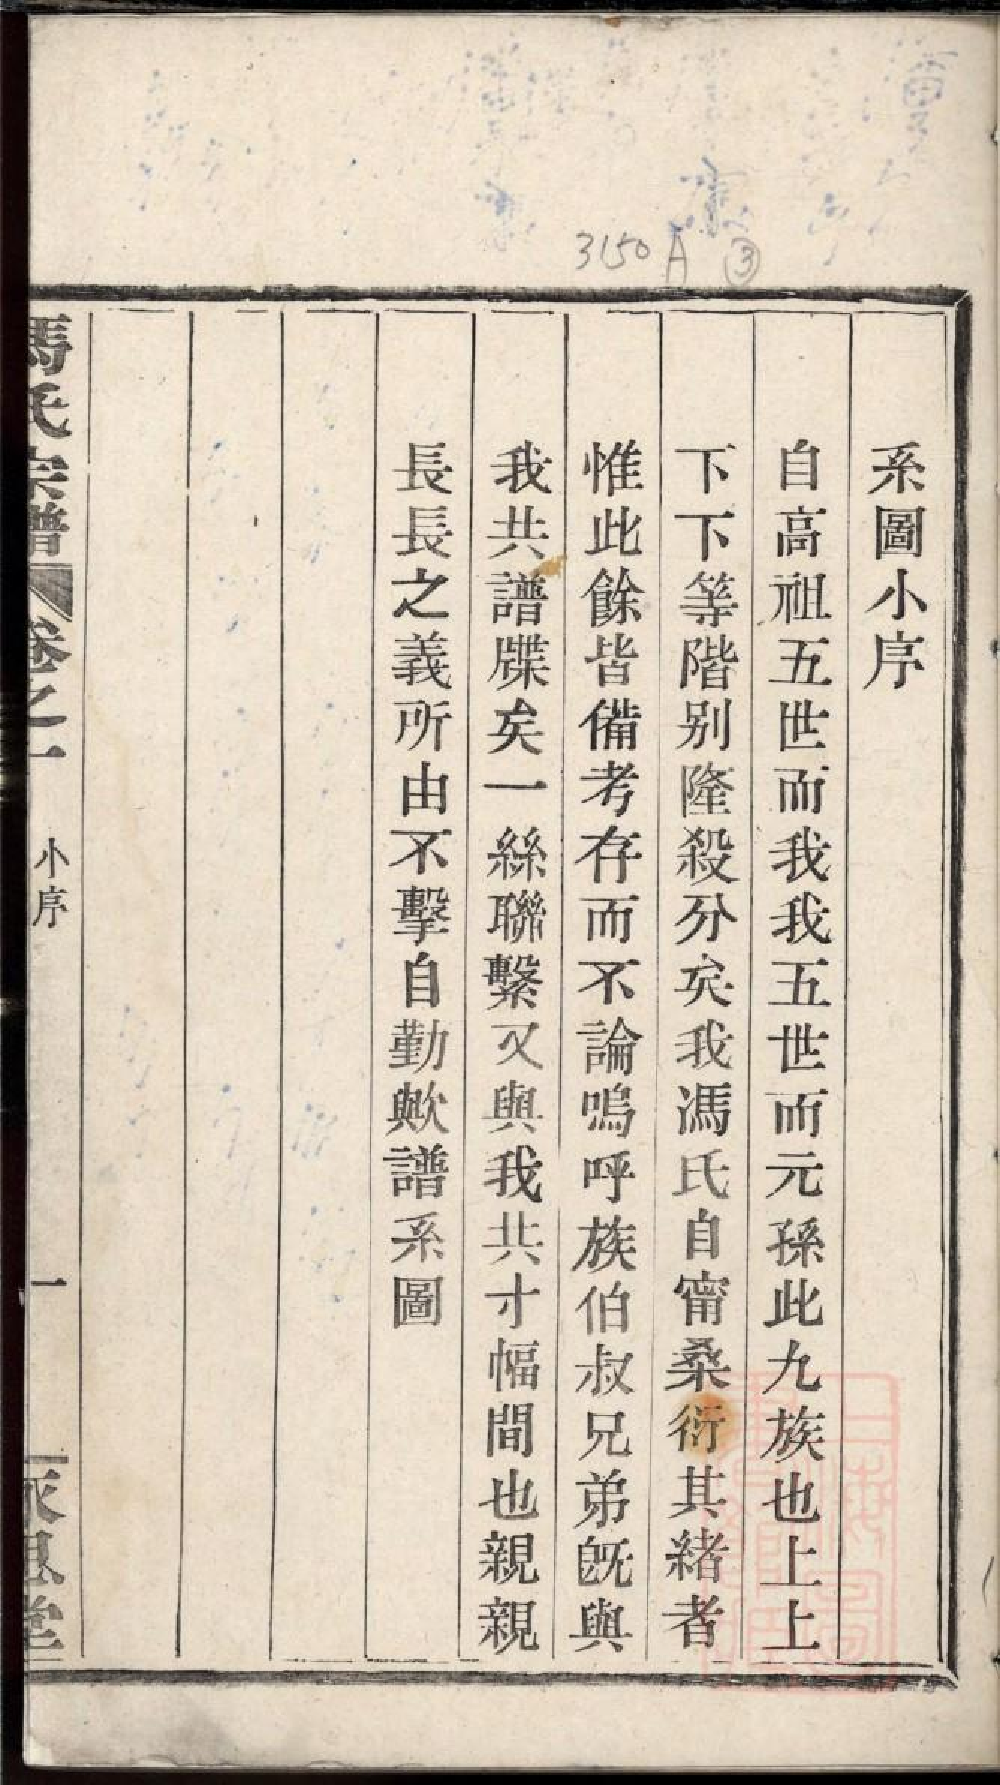 3150 A ③
系圖小序
自高祖五世而我我五世而元孫此九族也上上
下下等階别隆殺分矣我馮氏自甯桑衍其緒者
惟此餘皆備考存而不論嗚呼族伯叔兄弟旣與
我共譜牒矣一絲聯繫又與我共寸幅間也親親
長長之義所由不擊自勤歟譜系圖
馮氏宗譜 卷之一 小序 一 永思堂